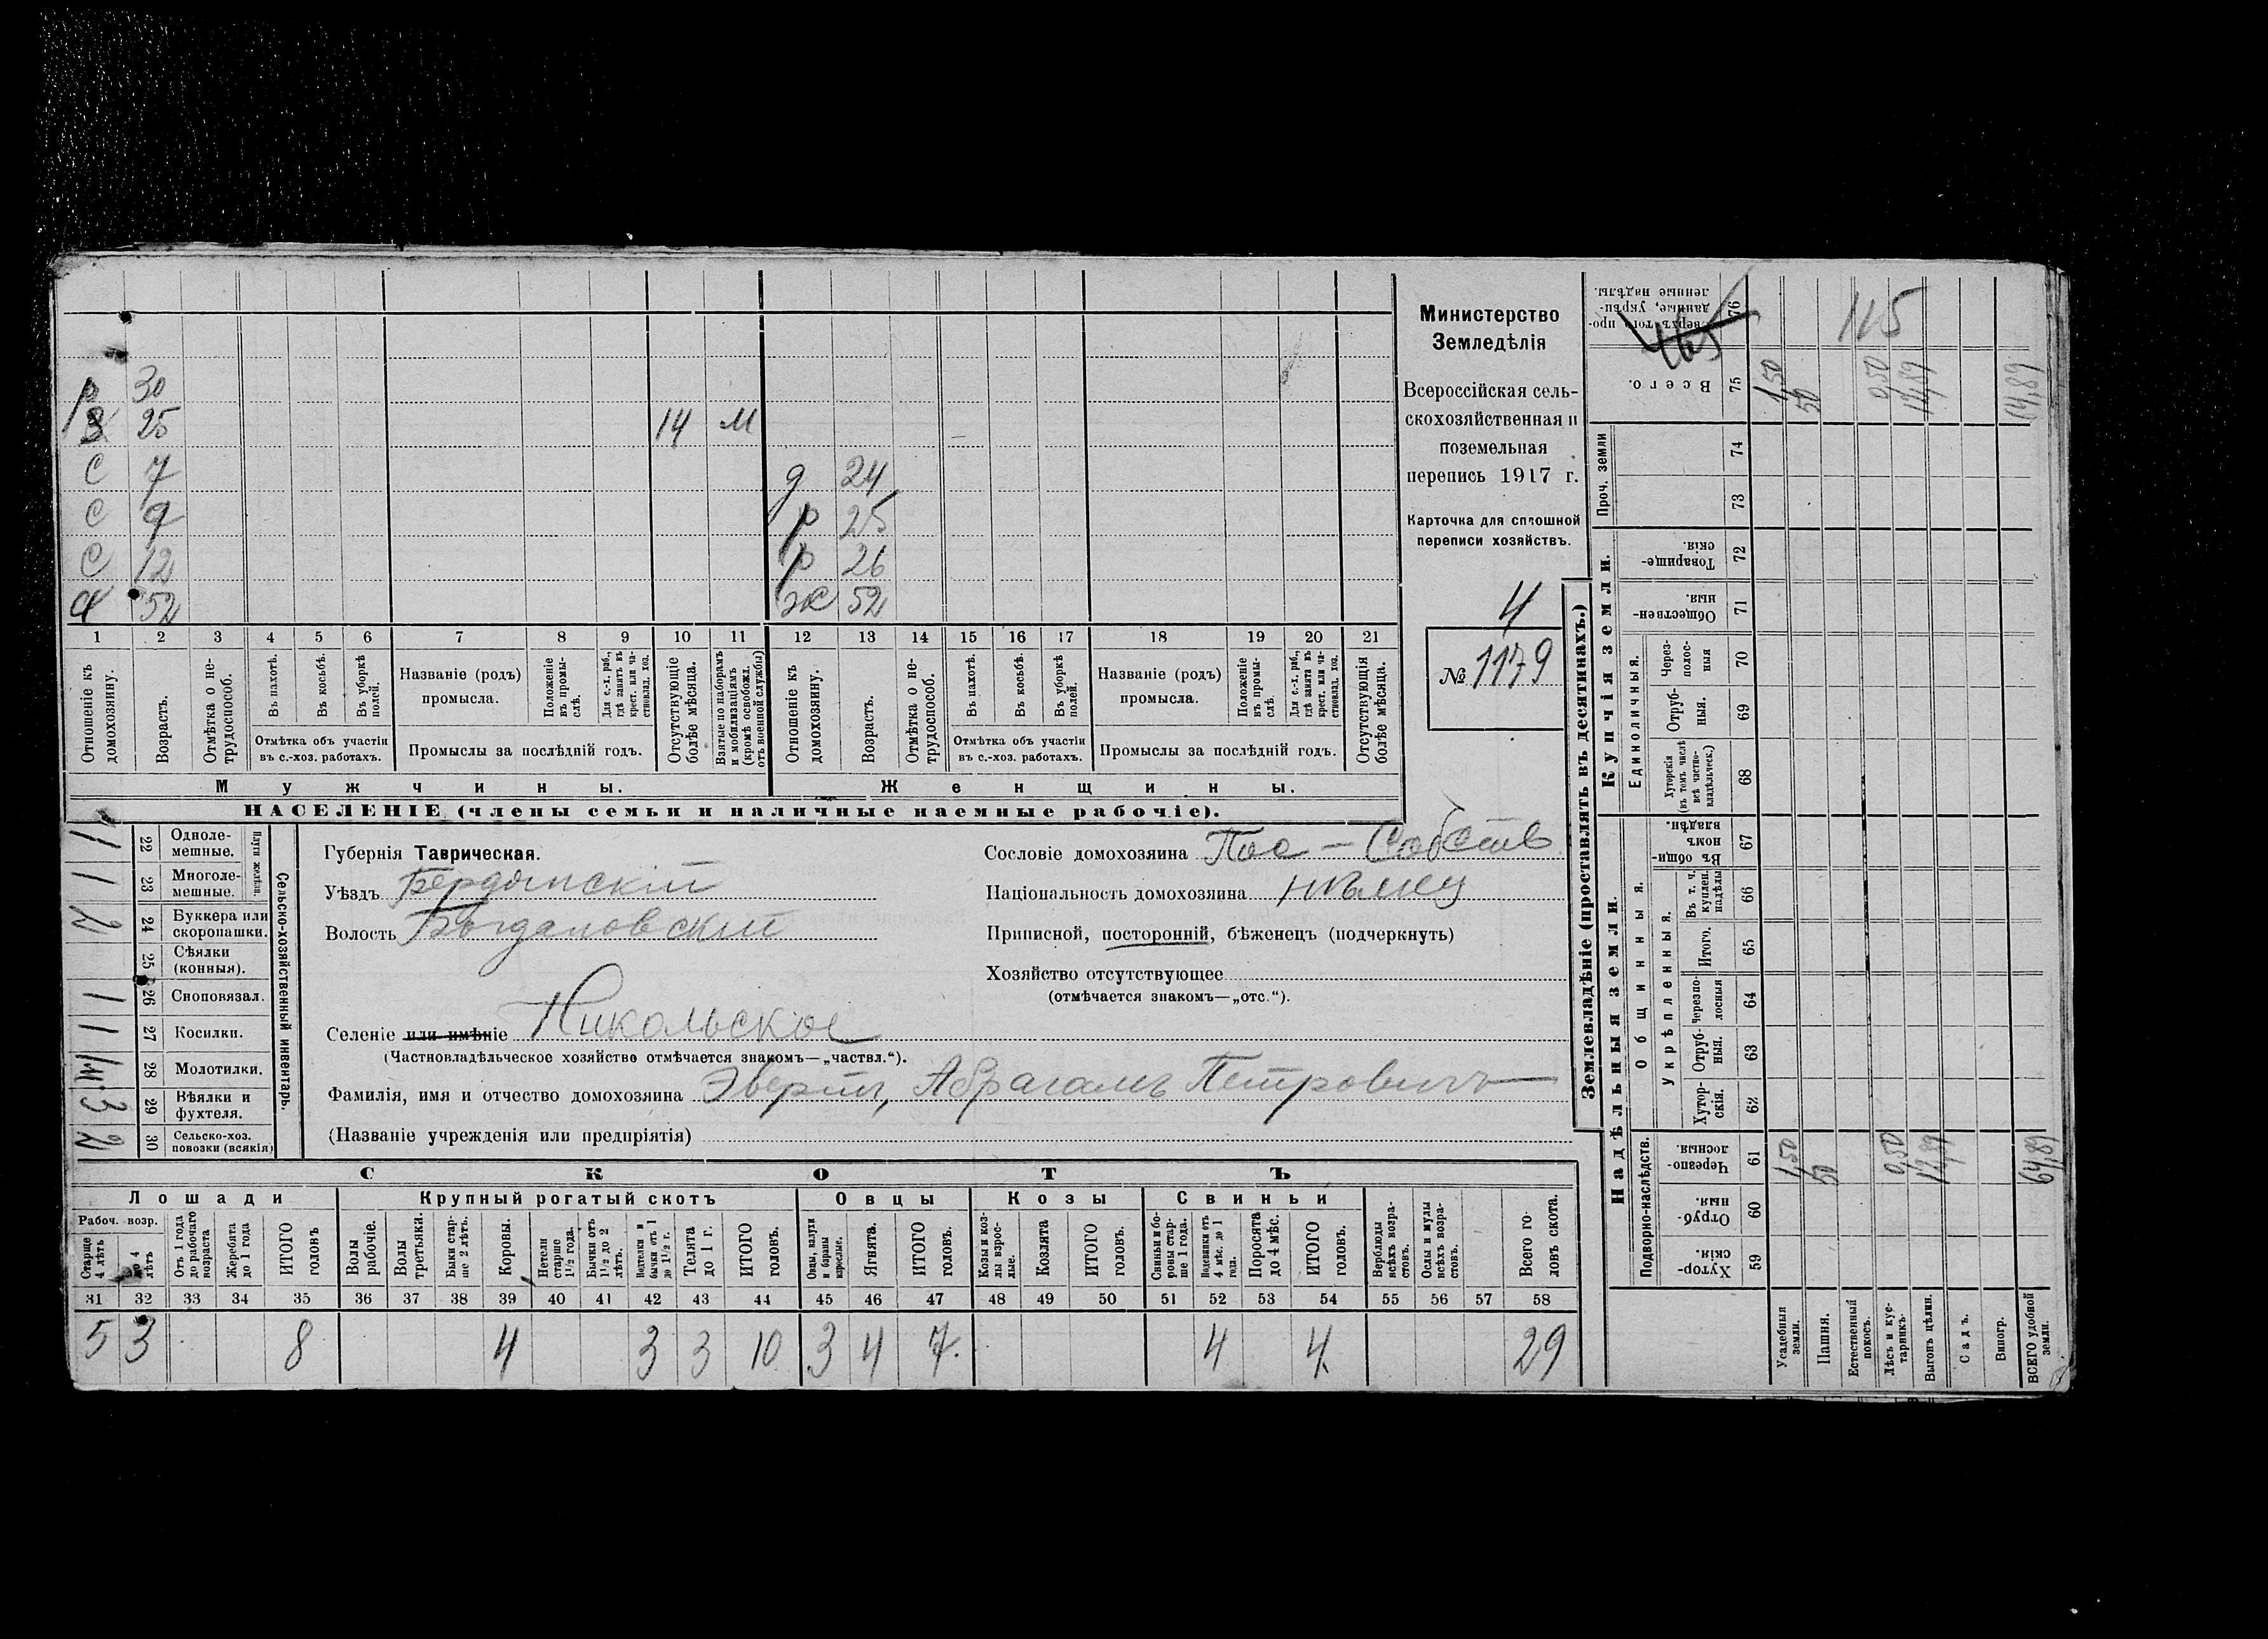 р 30
З 25 14 М
С 7 д 24
С 9 р 25
С 12 р 26
Х 52 ж 52
1 2 3 4 5 6 7 8 9 10 11 12 13 14 15 16 17 18 19 20 21
Отношеніе къ домохозяину.
Возрастъ.
Отмѣтка о не-
трудоспособ.
Въ пахотѣ.
Въ косьбѣ.
Въ уборкѣ полей.
Отмѣтка объ участіи
въ с.-хоз. работахъ.
Названіе (родъ)
промысла.
Положеніе въ промы-
слѣ.
Для с.-х. раб.,
гдѣ занятъ въ
крест. или ча-
стновлад. хоз.
Промыслы за послѣдній годъ.
Отсутствующіе
болѣе мѣсяца.
Взятые по наборамъ
и мобилизаціямъ
(кромѣ освобожд.
отъ военной службы)
Отношеніе къ
домохозяину.
Возрастъ.
Отмѣтка о не-
трудоспособ.
Въ пахотѣ.
Въ косьбѣ.
Въ уборкѣ
полей.
Отмѣтка объ участіи
въ с.-хоз. работахъ.
Названіе (родъ)
промысла.
Положеніе
въ промы-
слѣ.
Для с.-х. раб.,
гдѣ занята въ
крест. или ча-
стновлад. хоз.
Промыслы за послѣдній годъ.
Отсутствующія
болѣе мѣсяца.
Мужчины.
Женщины.
НАСЕЛЕНІЕ (члены семьи и наличные наемные рабочіе).
Министерство
Земледѣлія
Всероссійская сель-
скохозяйственная и
поземельная
перепись 1917 г.
Карточка для сплошной
переписи хозяйствъ.
4
№ 1179
Сельско-хозяйственный инвентарь.
Плуги желѣзн.
22 Одноле-
мешные. 1
23 Многоле-
мешные. 1
24 Буккера или
скоропашки. 2
25 Сѣялки
(конныя).
26 Сноповязал. 1
27 Косилки. 1
28 Молотилки.
29 Вѣялки и
фухтеля. 3
30 Сельско-хоз.
повозки (всякія) 2
Губернія Таврическая.
Уѣздъ Бердянскій
Волость Богдановский
Селеніе или имѣніе Никольское
(Частновладѣльческое хозяйство отмѣчается знакомъ—„частвл.“).
Фамилія, имя и отчество домохозяина Эвертъ, Абрагамъ Петровичъ
(Названіе учрежденія или предпріятія)
Сословіе домохозяина Пос - Собств
Національность домохозяина нѣмец
Приписной, посторонній, бѣженецъ (подчеркнуть)
Хозяйство отсутствующее
(отмѣчается знакомъ—„отс.“).
СКОТЪ
Лошади Крупный рогатый скотъ Овцы Козы Свиньи
Рабоч. возр.
Старше
4 лѣтъ
до 4
лѣтъ
Отъ 1 года
до рабочаго
возраста
Жеребята
до 1 года
ИТОГО
головъ
Волы
рабочіе.
Волы
третьяки.
Быки стар-
ше 2 лѣтъ.
Коровы.
Нетели
старше
1½ года.
Бычки отъ
1½ до 2
лѣтъ.
Подтелки и
бычки отъ 1
до 1½ г.
Телята
до 1 г.
ИТОГО
головъ.
Овцы, валухи
и бараны
взрослые.
Ягнята.
ИТОГО
головъ.
Козы и коз-
лы взрос-
лые.
Козлята
ИТОГО
головъ.
Свиньи и бо-
ровы стар-
ше 1 года.
Подсвинки отъ
4 мѣс. до 1
года.
Поросята
до 4 мѣс.
ИТОГО
головъ.
Верблюды
всѣхъ возра-
стовъ.
Ослы и мулы
всѣхъ возра-
стовъ.
Всего го-
ловъ скота.
31 32 33 34 35 36 37 38 39 40 41 42 43 44 45 46 47 48 49 50 51 52 53 54 55 56 57 58
5 3 8 4 3 3 10 3 4 7. 4 4. 29
Землевладѣніе (проставлять въ десятинахъ.)
Надѣльныя земли.
Купчія земли.
Проч. земли
Подворно-наслѣдств.
Общинныя.
Укрѣпленныя.
Единоличныя.
Хутор-
скія. 59
Отруб-
ныя. 60
Черезпо-
лосныя. 61
Хутор-
скія. 62
Отруб-
ныя. 63
Черезпо-
лосныя 64
Итого. 65
Въ т. ч.
куплен.
надѣлы 66
Въ общин-
номъ
владѣн. 67
Хуторскія
(въ томъ числѣ
всѣ частно-
владѣльческ.) 68
Отруб-
ныя. 69
Через-
полос-
ныя 70
Обществен-
ныя. 71
Товарище-
скія. 72
73
74
Всего. 75
Сверхъ того про-
данные, укрѣп-
ленные надѣлы. 76
115
Усадебныя
земли. 1,50 1,50
Пашня. 50 50
Естественный
покосъ.
Лѣсъ и кус-
тарникъ. 0,50 0,50
Выгонъ цѣлин. 12,89 12,89
Садъ.
Виногр.
ВСЕГО удобной
земли. 64,89 64,89